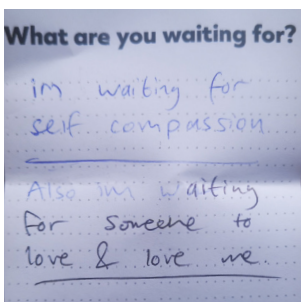 What are you waiting for?
im waiting for
self compassion
Also im waiting
for someone to
love & love me.